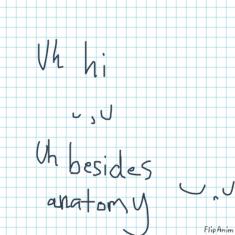 Uh hi
U,U
Uh besides
anatomy U^U
FlipAnim